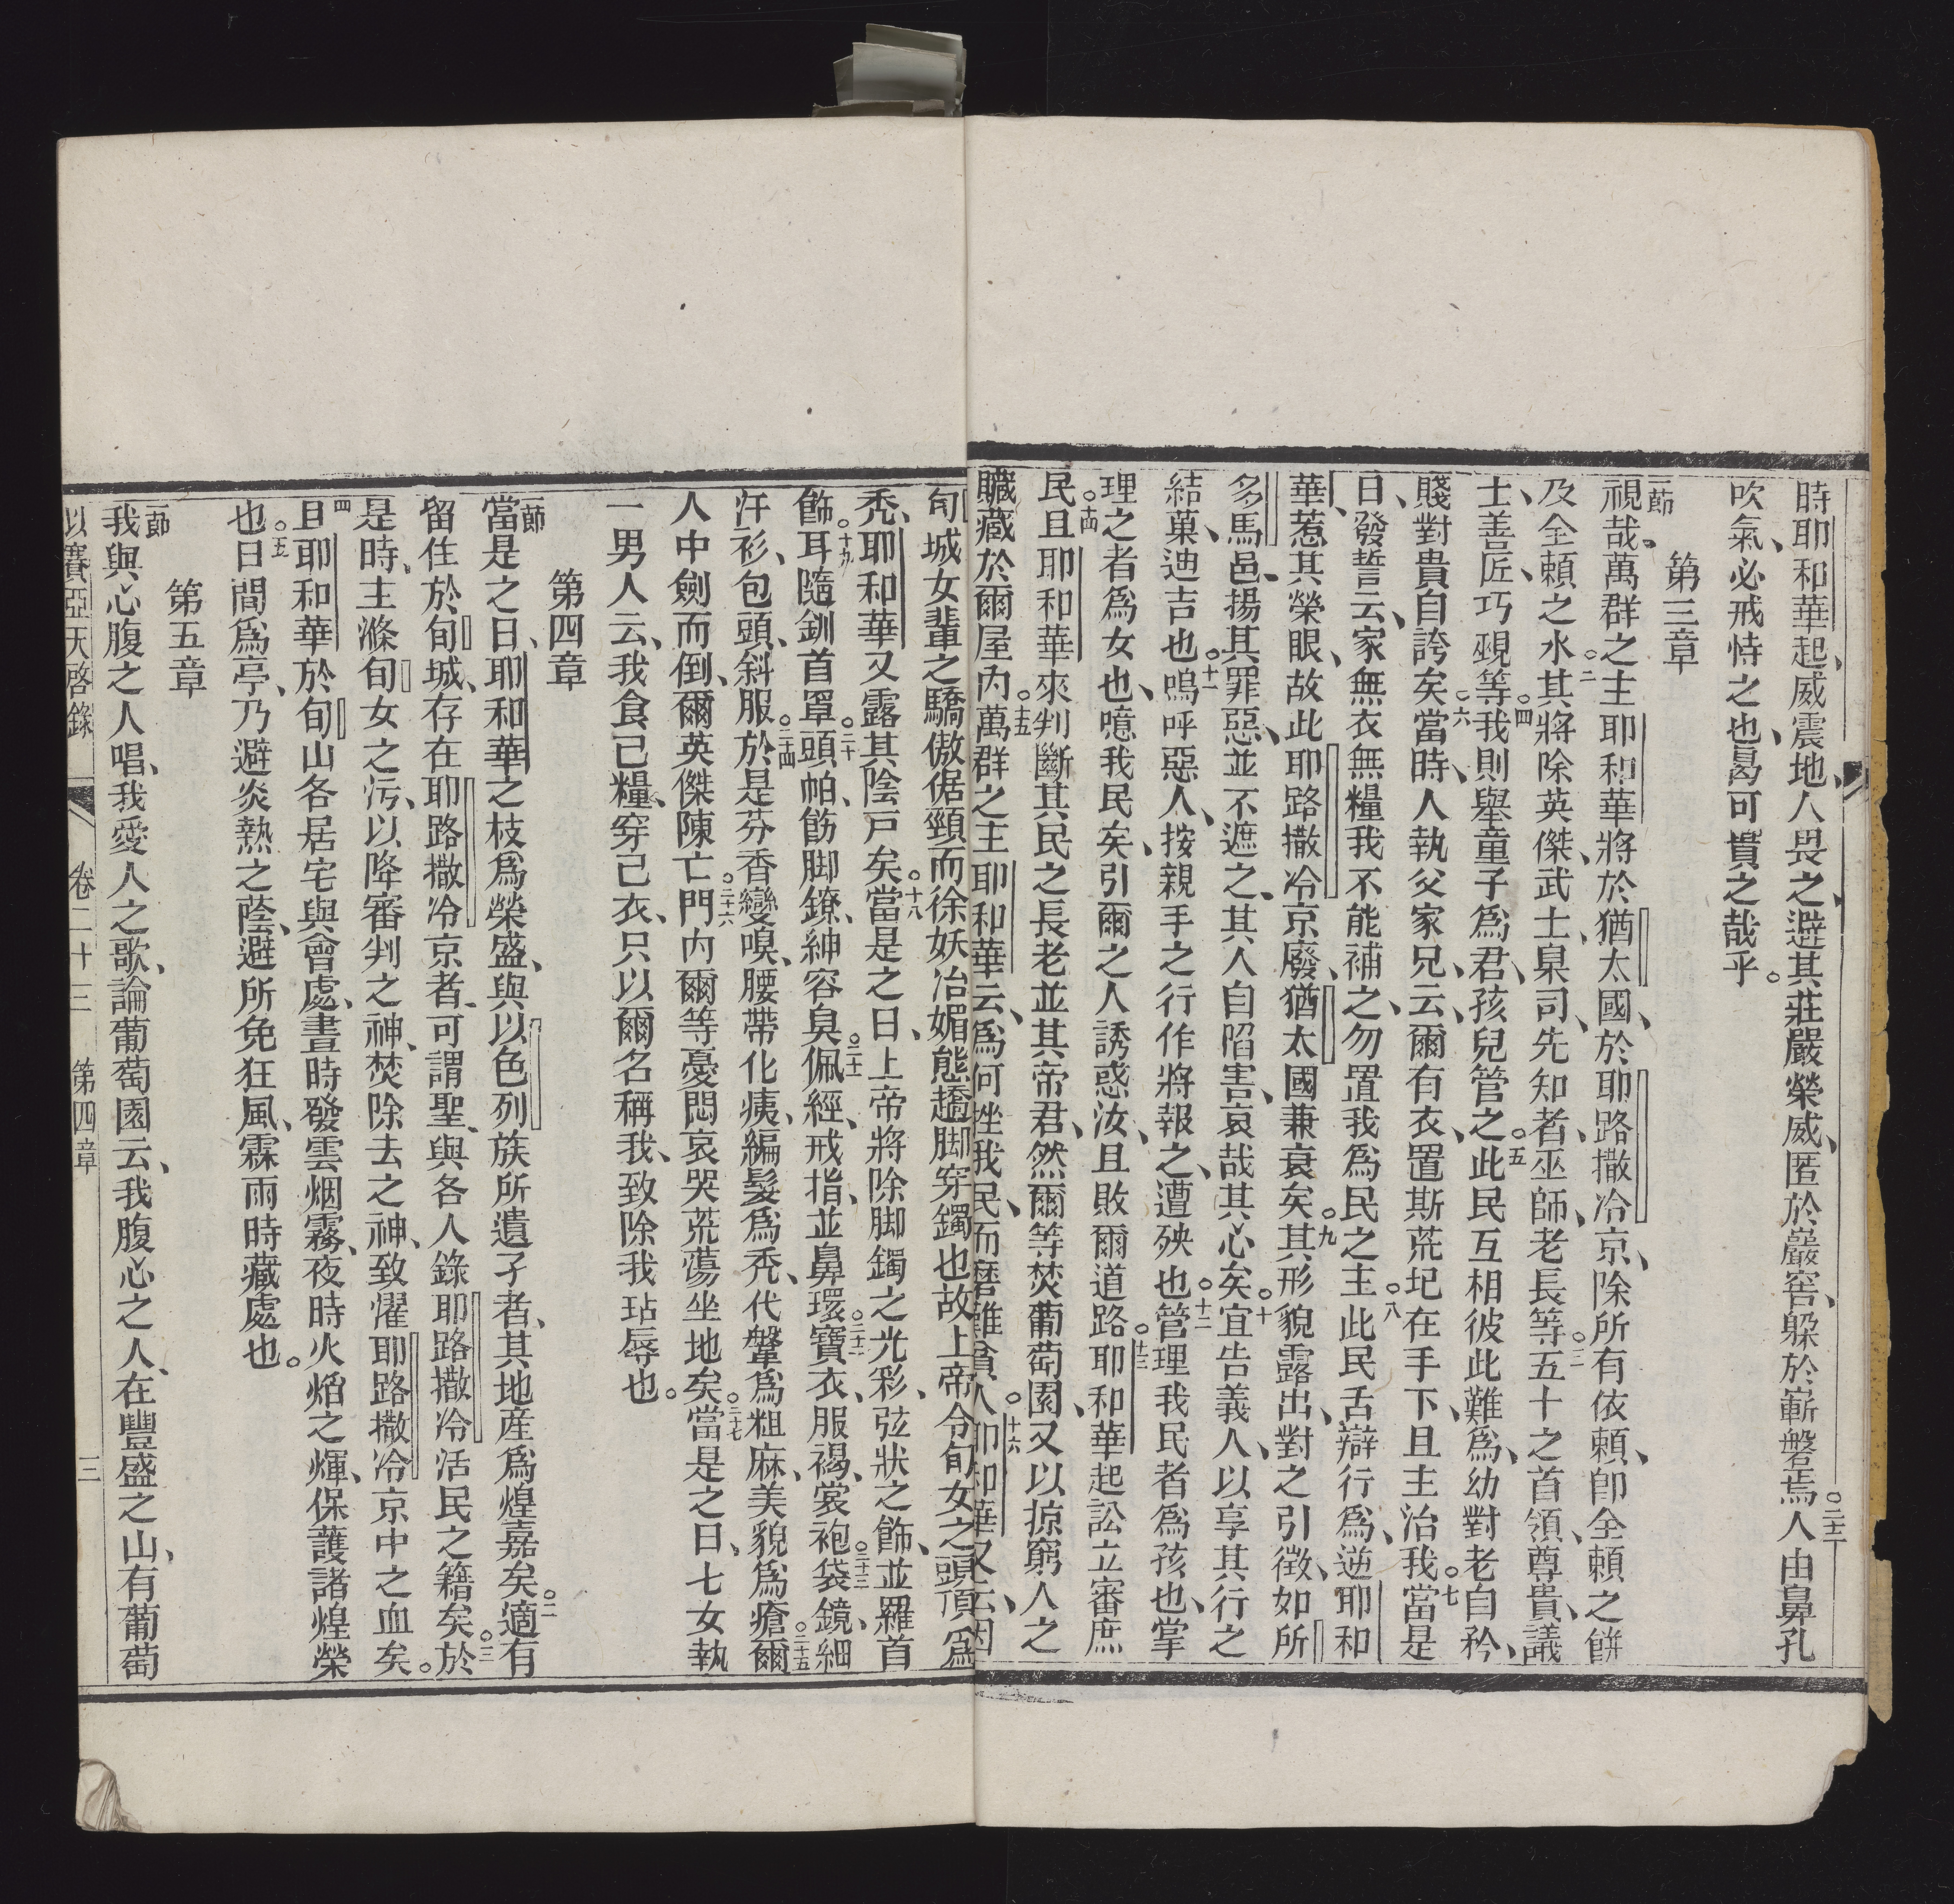 時耶和華起威震地、人畏之、避其莊嚴榮威、匿於巖窖、躲於嶄磐焉。二十二人由鼻孔
吹氣、必戒恃之也、曷可貴之哉乎。
第三章
一節視哉、萬群之主耶和華將於猶太國、於耶路撒冷京、除所有依賴、卽全賴之餅
及全賴之水。二其將除英傑、武士、臬司、先知者、巫師、老長等。三五十之首領、尊貴、議
士、善匠、巧覡等。四我則舉童子爲君、孩兒管之。五此民互相彼此難爲、幼對老自矜、
賤對貴自誇矣。六當時、人執父家兄、云、爾有衣、置斯荒圮在手下、且主治我。七當是
日、發誓云、家無衣無糧我不能補之、勿置我爲民之主。八此民舌辯行爲、逆耶和
華、惹其榮眼、故此耶路撒冷京廢、猶太國兼衰矣。九其形貌露出、對之引徵、如所
多馬邑、揚其罪惡、並不遮之、其人自陷害、哀哉其心矣。十宜告義人、以享其行之
結菓、迪吉也。十一嗚呼惡人、按親手之行作將報之、遭殃也。十二管理我民者爲孩也、掌
理之者爲女也、噫我民矣、引爾之人誘惑汝、且敗爾道路。十三耶和華起訟立審庶
民。十四且耶和華來判斷其民之長老並其帝君、然爾等焚葡萄園、又以掠窮人之
贓藏於爾屋內。十五萬群之主耶和華云、爲何挫我民、而磨難貧人。十六耶和華又云、因
旬城女輩之驕傲倨頸而徐妖冶媚態、趫脚穿鐲也、故上帝令旬女之頭頂爲
禿、耶和華又露其陰戸矣。十八當是之日、上帝將除脚鐲之光彩、弦狀之飾、並羅首
飾。十九耳隨釧首罩。二十頭帕、飭脚鐐、紳容臭。二十一佩經、戒指、並鼻環。二十二寶衣、服褐、裳袍。二十三袋鏡、細
汗衫、包頭、斜服。二十四於是芬香變嗅、腰帶化痍、編髮爲禿、代鞶爲粗麻、美貌爲瘡。二十五爾
人中劍而倒、爾英傑陳亡。二十六門內爾等憂悶哀哭荒蕩坐地矣。二十七當是之日、七女執
一男人云、我食己糧、穿己衣、只以爾名稱我、致除我玷辱也。
第四章
一節當是之日、耶和華之枝爲榮盛、與以色列族所遺子者、其地産爲煌嘉矣。二適有
留住於旬城、存在耶路撒冷京者、可謂聖、與各人錄耶路撒冷活民之籍矣。三於
是時、主滌旬女之污、以降審判之神、焚除去之神、致濯耶路撒冷京中之血矣。
四且耶和華於旬山各居宅與會處、晝時發雲烟霧、夜時火焰之煇、保護諸煌榮
也。五日間爲亭、乃避炎熱之蔭、避所免狂風、霖雨時藏處也。
第五章
一節我與心腹之人唱、我愛人之歌、論葡萄園云、我腹心之人、在豐盛之山、有葡萄
以賽亞天啓錄 卷二十三 第四章 三